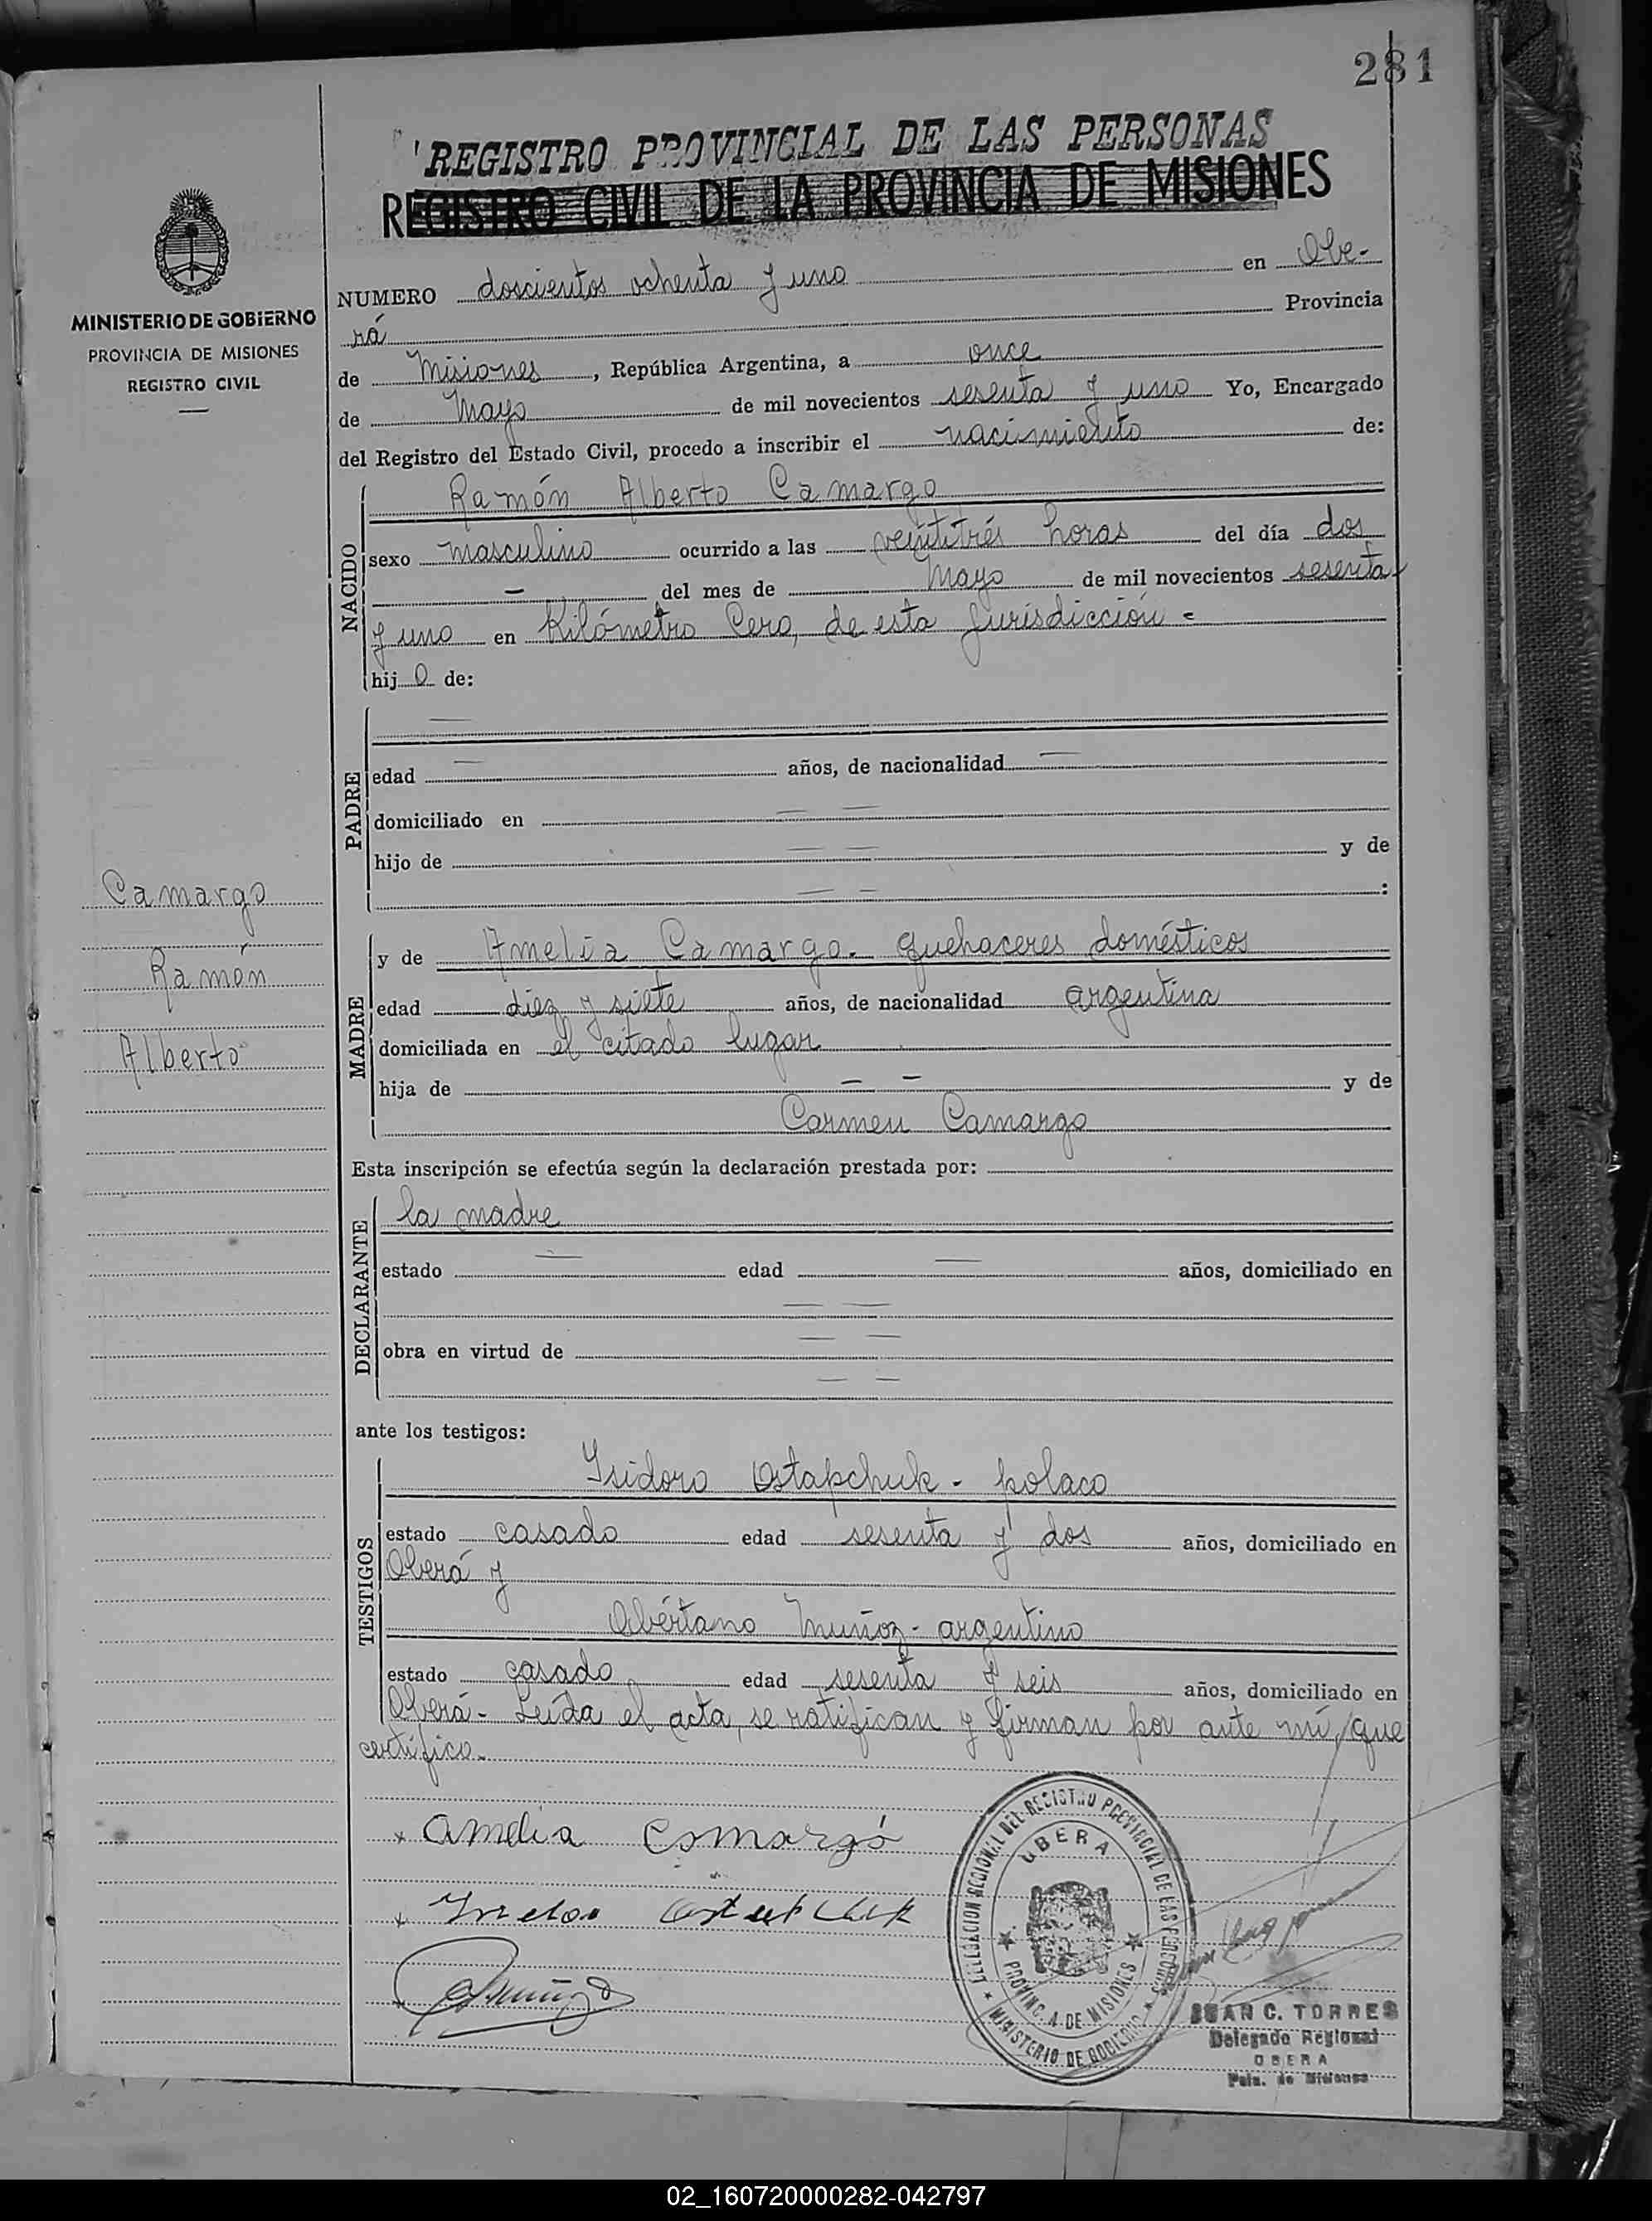 281
REGISTRO PROVINCIAL DE LAS PERSONAS
REGISTRO CIVIL DE LA PROVINCIA DE MISIONES
MINISTERIO DE GOBIERNO
PROVINCIA DE MISIONES
REGISTRO CIVIL
NUMERO doscientos ochenta y uno en Obe-
rá Provincia
de Misiones, República Argentina, a once
de Mayo de mil novecientos sesenta y uno Yo, Encargado
del Registro del Estado Civil, procedo a inscribir el nacimiento de:
NACIDO
Ramón Alberto Camargo
sexo masculino ocurrido a las veintitrés horas del día dos
— del mes de Mayo de mil novecientos sesenta
y uno en Kilómetro Cero, de esta jurisdicción -
hijo de:
PADRE
—
edad — años, de nacionalidad —
domiciliado en — —
hijo de — — y de
— — :
Camargo
Ramón
Alberto
MADRE
y de Amelia Camargo. quehaceres domésticos
edad diez y siete años, de nacionalidad argentina
domiciliada en el citado lugar
hija de — — y de
Carmen Camargo
Esta inscripción se efectúa según la declaración prestada por:
DECLARANTE
la madre
estado — edad — años, domiciliado en
— —
obra en virtud de — —
— —
ante los testigos:
TESTIGOS
Isidoro Ostapchuk - polaco
estado casado edad sesenta y dos años, domiciliado en
Oberá y
Obértano Muñoz - argentino
estado casado edad sesenta y seis años, domiciliado en
Oberá - Leída el acta, se ratifican y firman por ante mí, que
certifico.
x Amelia Camargo
DELEGACION REGIONAL DEL REGISTRO PROVINCIAL DE LAS PERSONAS
OBERA
PROVINCIA DE MISIONES
MINISTERIO DE GOBIERNO
JUAN C. TORRES
Delegado Regional
OBERA
Pcia. de Misiones
02_160720000282-042797